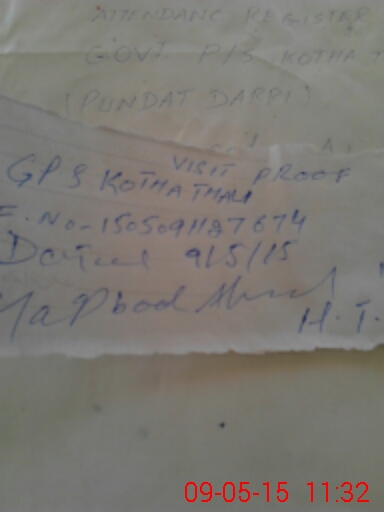 ATTENDANC REGISTER
GOVT P/S KOTHA T
(PUNDAT DARPI)
VISIT PROOF
GPS KOTHATHALI
E. No-150509127674
Dated 9/5/15
H.T.
09-05-15 11:32